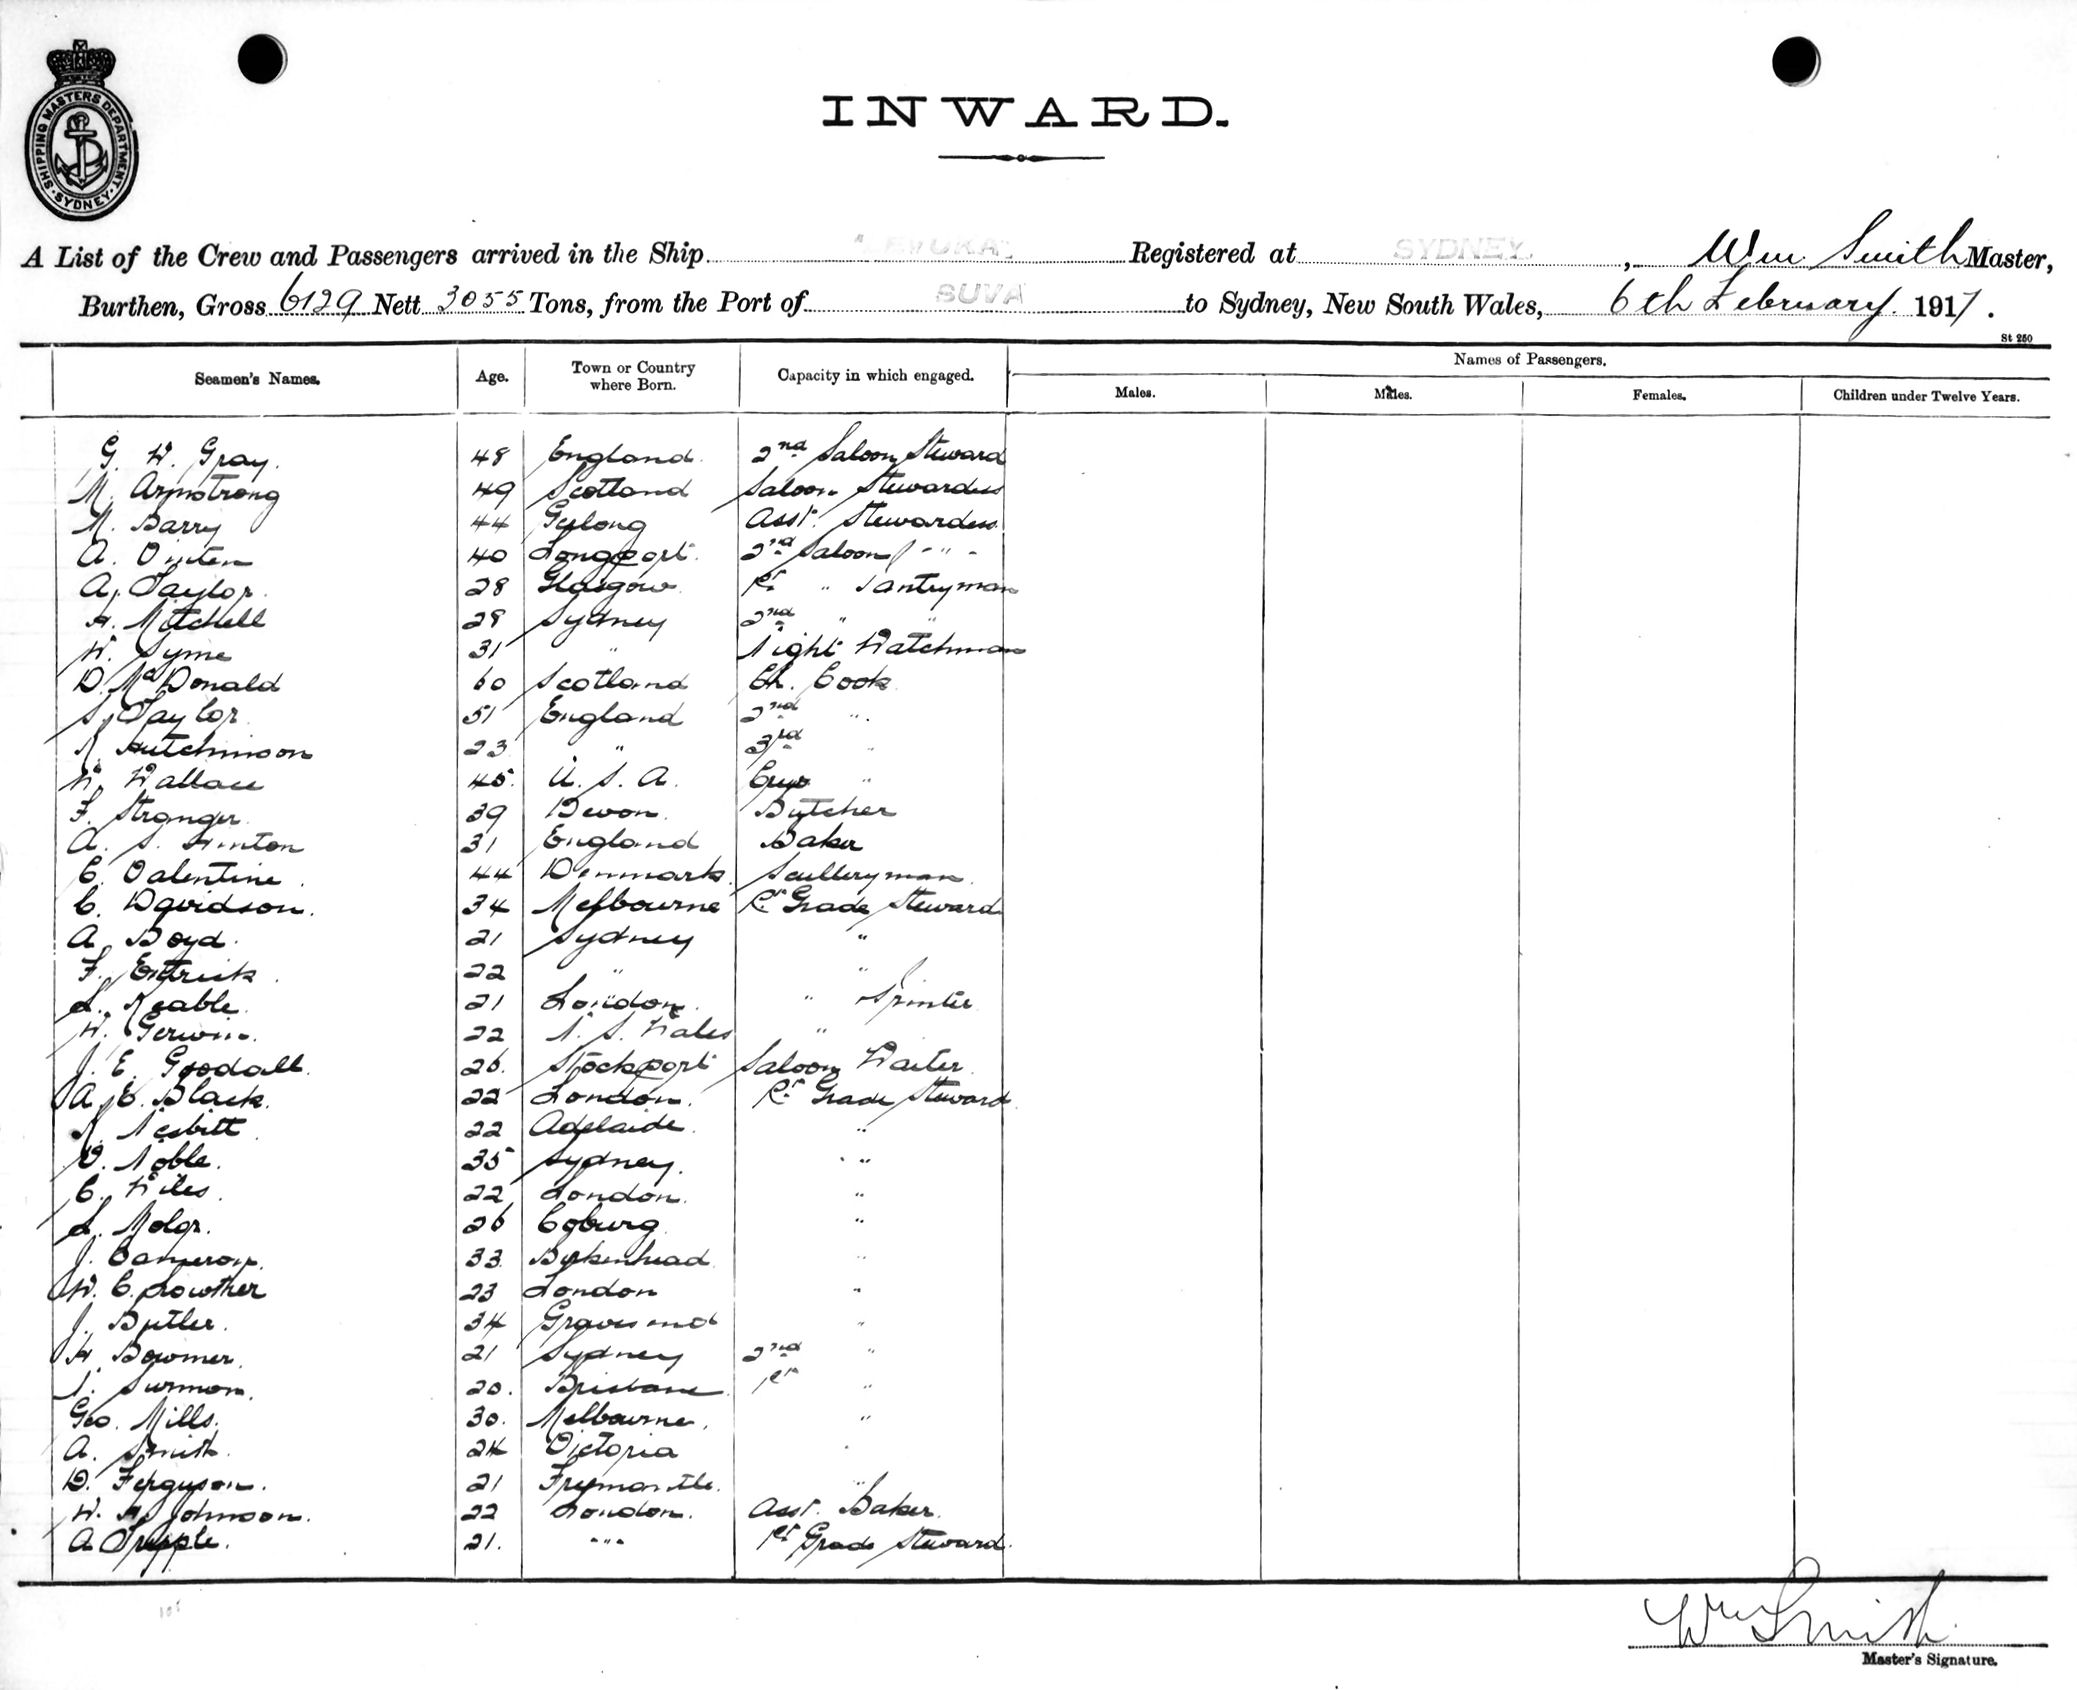 SHIPPING MASTERS DEPARTMENT. SYDNEY.
INWARD.
A List of the Crew and Passengers arrived in the Ship "LEVUKA". Registered at SYDNEY, Wm Smith Master,
Burthen, Gross 6129 Nett 3055 Tons, from the Port of SUVA to Sydney, New South Wales, 6th February. 1917.
St 250
Seamen's Names. Age. Town or Country where Born. Capacity in which engaged. Names of Passengers.
Males. Males. Females. Children under Twelve Years.
G. W. Gray. 48 England. 2nd Saloon Steward
M. Armstrong 49 Scotland Saloon Stewardess
M. Barry 44 Geelong Asst. Stewardess
A. 40 Longport. 2nd Saloon " " "
A. Taylor. 28 Glasgow. 1st " Pantryman
H. Mitchell 28 Sydney 2nd " "
W. Syme 31 " Night Watchman
D. McDonald 60 Scotland Ch. Cook
S. Taylor. 51 England 2nd ".
R. Hutchinson 23 " 3rd "
W. Wallace 45. U. S. A. Crew "
F. Stranger. 39 Devon. Butcher
A. S. Hinton 31 England Baker
C. Valentine. 44 Denmark. Sculleryman.
C. Davidson. 34 Melbourne 1st Grade Steward
A. Boyd. 21 Sydney "
F. 22 " "
L. Keable. 21 London. " Printer
W. 22 N. S. Wales "
J. E. Goodall. 26. Stockport Saloon Waiter
A. E. Black. 22 London. 1st Grade Steward
R. Nesbitt 22 Adelaide. "
V. Noble. 35 Sydney. "
C. Wiles. 22 London. "
L. 26 Coburg. "
J. Cameron. 33. Birkenhead. "
W. C. Lowther 23 London "
J. Butler. 34 Gravesend "
H. Bowmer. 21 Sydney 2nd "
20. Brisbane 1st "
Geo. Mills. 30. Melbourne. "
A. Smith. 24 Victoria "
D. Ferguson. 21 Fremantle. "
W. H. Johnson. 22 London. Asst. Baker.
A. 21. " 1st Grade Steward.
Wm Smith
Master's Signature.